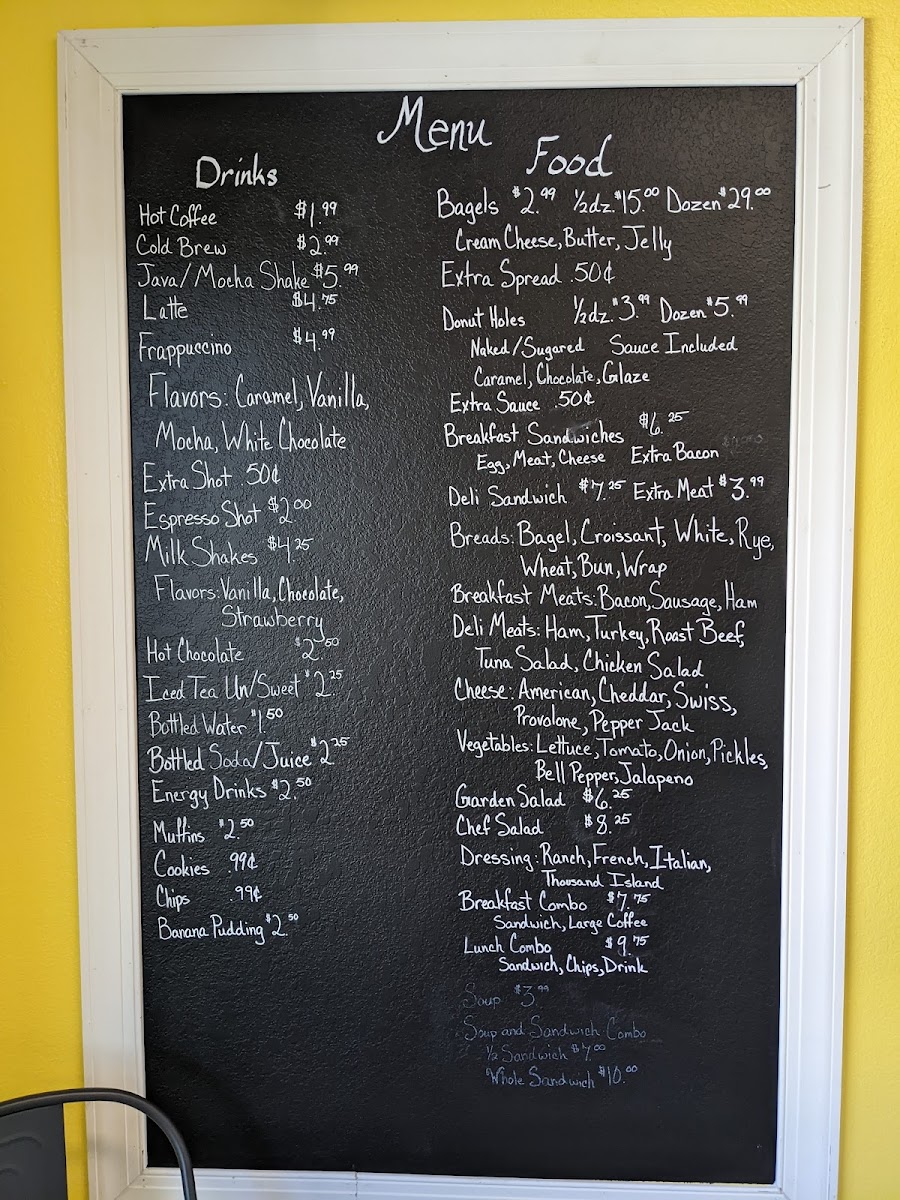 Menu
Drinks
Hot Coffee $1.99
Cold Brew $2.99
Java/Mocha Shake $5.99
Latte $4.75
Frappuccino $4.99
Flavors: Caramel, Vanilla,
Mocha, White Chocolate
Extra Shot .50¢
Espresso Shot $2.00
Milk Shakes $4.25
Flavors: Vanilla, Chocolate,
Strawberry
Hot Chocolate $2.50
Iced Tea Un/Sweet $2.25
Bottled Water $1.50
Bottled Soda/Juice $2.25
Energy Drinks $2.50
Muffins $2.50
Cookies .99¢
Chips .99¢
Banana Pudding $2.50
Food
Bagels $2.99 ½dz. $15.00 Dozen $29.00
Cream Cheese, Butter, Jelly
Extra Spread .50¢
Donut Holes ½dz. $3.99 Dozen $5.99
Naked/Sugared Sauce Included
Caramel, Chocolate, Glaze
Extra Sauce .50¢
Breakfast Sandwiches $6.25
Egg, Meat, Cheese Extra Bacon
Deli Sandwich $7.25 Extra Meat $3.99
Breads: Bagel, Croissant, White, Rye,
Wheat, Bun, Wrap
Breakfast Meats: Bacon, Sausage, Ham
Deli Meats: Ham, Turkey, Roast Beef,
Tuna Salad, Chicken Salad
Cheese: American, Cheddar, Swiss,
Provolone, Pepper Jack
Vegetables: Lettuce, Tomato, Onion, Pickles,
Bell Pepper, Jalapeno
Garden Salad $6.25
Chef Salad $8.25
Dressing: Ranch, French, Italian,
Thousand Island
Breakfast Combo $7.75
Sandwich, Large Coffee
Lunch Combo $9.75
Sandwich, Chips, Drink
Soup $3.99
Soup and Sandwich Combo
½ Sandwich $7.00
Whole Sandwich $10.00